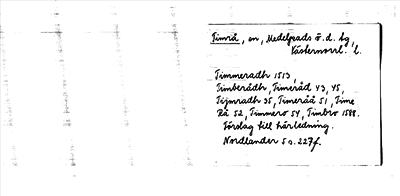 Timrå, en, Medelpads ö.d. hg,
Västernorrl. l.
Timmeradh 1513,
Timberådh, Timeråd 43, 45,
Timråd 35, Timeråå 51, Time
Rå 52, Timmerå 54, Timbro 1588.
Förslag till härledning.
Nordlander s 0. 227f.